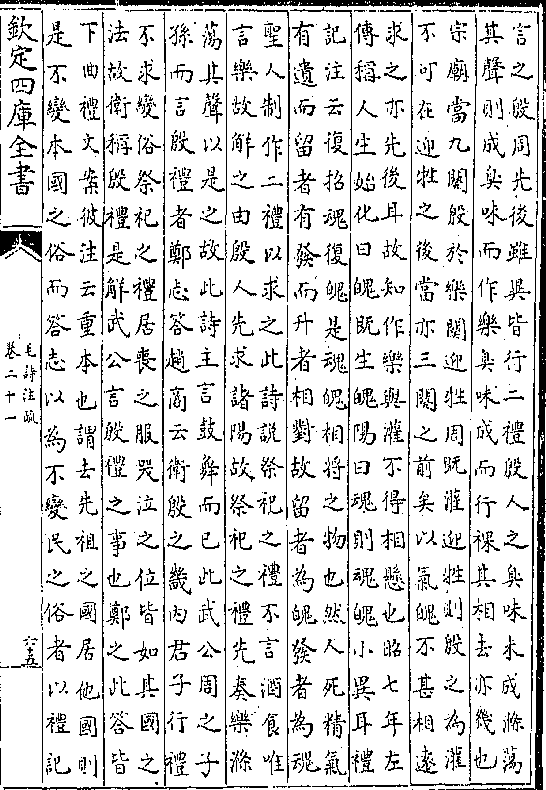 言之殷周先後雖異皆行二禮殷人之臭味未成滌蕩
其聲則成臭味而作樂臭味成而行祼其相去亦幾也
宗廟當九闋殷於樂闋迎牲周既灌迎牲則殷之為灌
不可在迎牲之後當亦三闋之前矣以氣魄不甚相逺
求之亦先後耳故知作樂與灌不得相懸也昭七年左
傳稱人生始化曰魄既生魄陽曰魂則魂魄小異耳禮
記注云復招魂復魄是魂魄相將之物也然人死精氣
有遺而留者有發而升者相對故留者為魄發者為魂
聖人制作二禮以求之此詩説祭祀之禮不言酒食唯
言樂故解之由殷人先求諸陽故祭祀之禮先奏樂滌
蕩其聲以是之故此詩主言鼓舞而已此武公周之子
孫而言殷禮者鄭志答趙商云衛殷之畿内君子行禮
不求變俗祭祀之禮居喪之服哭泣之位皆如其國之
法故衛稱殷禮是解武公言殷禮之事也鄭之此答皆
下曲禮文案彼注云重本也謂去先祖之國居他國則
是不變本國之俗而答志以為不變民之俗者以禮記
欽定四庫全書
毛詩注疏
卷二十一
六十五